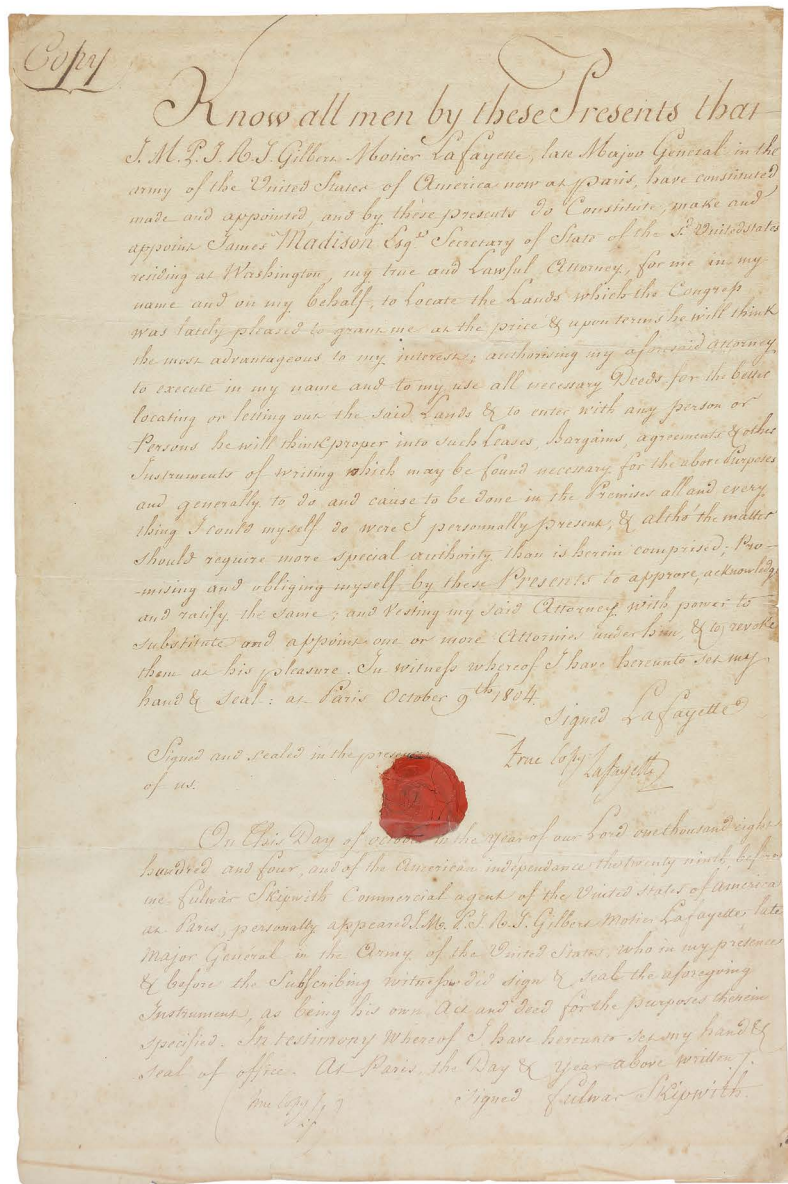 Copy
Know all men by these Presents that
J. M. P. J. R. J. Gilbert Motier LaFayette, late Major General in the
army of the United States of America now at paris, have constituted
made and appointed, and by these presents do Constitute, make and
appoint James Madison Esqr. Secretary of State of the sd. United states
residing at Washington, my true and Lawful Attorney, for me in my
name and on my behalf, to Locate the Lands which the Congress
was lately pleased to grant me at the price & upon terms he will think
the most advantageous to my interest; authorising my aforesaid Attorney
to execute in my name and to my use all necessary Deeds, for the better
locating or letting out the said Lands & to enter with any person or
Persons he will think proper into such Leases, Bargains, agreements & other
Instruments of writing which may be found necessary for the above Purposes
and generally to do and cause to be done in the Premises all and every
thing I could myself do were I personnally present, & altho' the matter
should require more special authority than is herein comprised; Pro-
-mising and obliging myself by these Presents to approve, acknowledge
and ratify the same; and Vesting my said Attorney with power to
substitute and appoint one or more Attornies under him, & to revoke
them at his pleasure. In witness whereof I have hereunto set my
hand & seal: at Paris October 9th 1804
Signed LaFayette
Signed and sealed in the presence
of us.
True Copy Lafayette
On This Day of october in the year of our Lord one thousand eight
hundred and four, and of the American independance the twenty ninth, before
me Fulwar Skipwith Commercial agent of the United states of America
at Paris, personally appeared J. M. P. J. R. J. Gilbert Motier Lafayette, late
Major General in the Army of the United States, who in my presence
& before the Subscribing witness did sign & seal the aforegoing
Instrument, as being his own Act and deed for the purposes therein
specified. In testimony whereof I have hereunto set my hand &
seal of office. At Paris, the Day & Year above written.
Signed Fulwar Skipwith.
true Copy